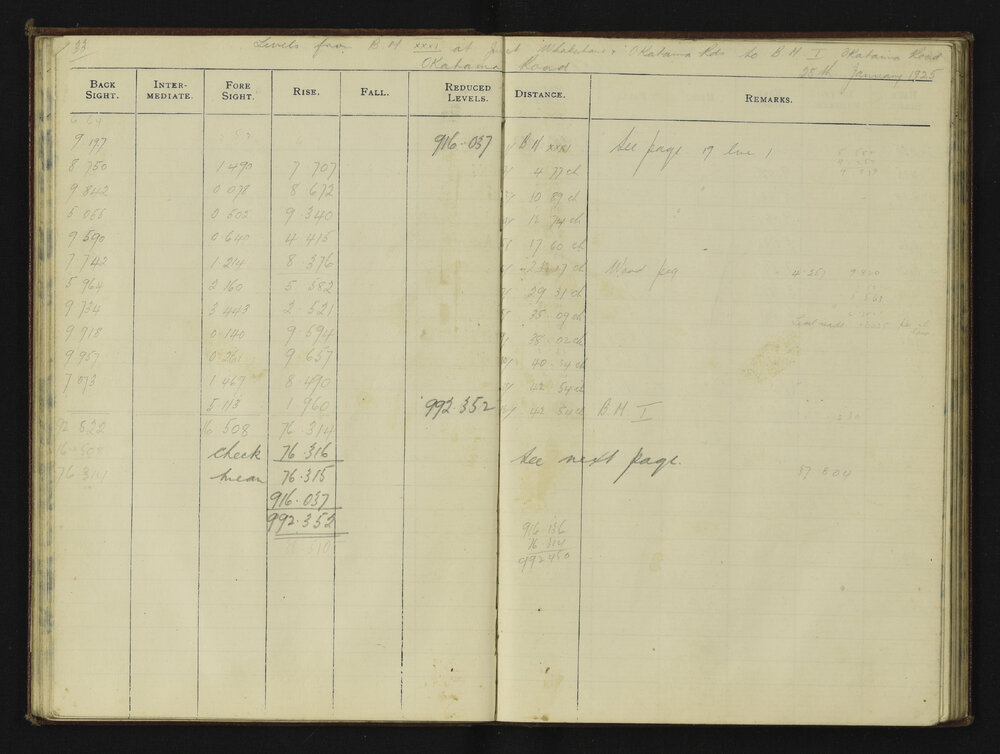 33 Levels from B M XXXI at Junct Whakatane & Okataina Rds to B M I Okataina Road
Okataina Road 28th January 1925
BACK SIGHT. INTER-MEDIATE. FORE SIGHT. RISE. FALL. REDUCED LEVELS. DISTANCE. REMARKS.
9 197 916.037 B M XXXI See page 19 line 1
8 750 1.490 7 707 4 77 ch
9.842 0.078 8 672 10 89 ch
5 055 0 502 9.340 12 74 ch
9.590 0.640 4 415 17 60 ch
7 742 1.214 8 376 17 ch Wood peg
5 964 2 160 5 582 29 31 ch
9 734 3 443 2.521 35.09 ch
9 918 0.140 9.594 38.02 ch
9 957 0.261 9.657 40.34 ch
7 073 1 467 8.490 42 54 ch
5 113 1 960 992.352 42 54 ch B M I
92 522 16 508 76 314
16 508 check 76 316 See next page.
76 314 mean 76.315
916.037
992.352
916 136
76 314
992 450